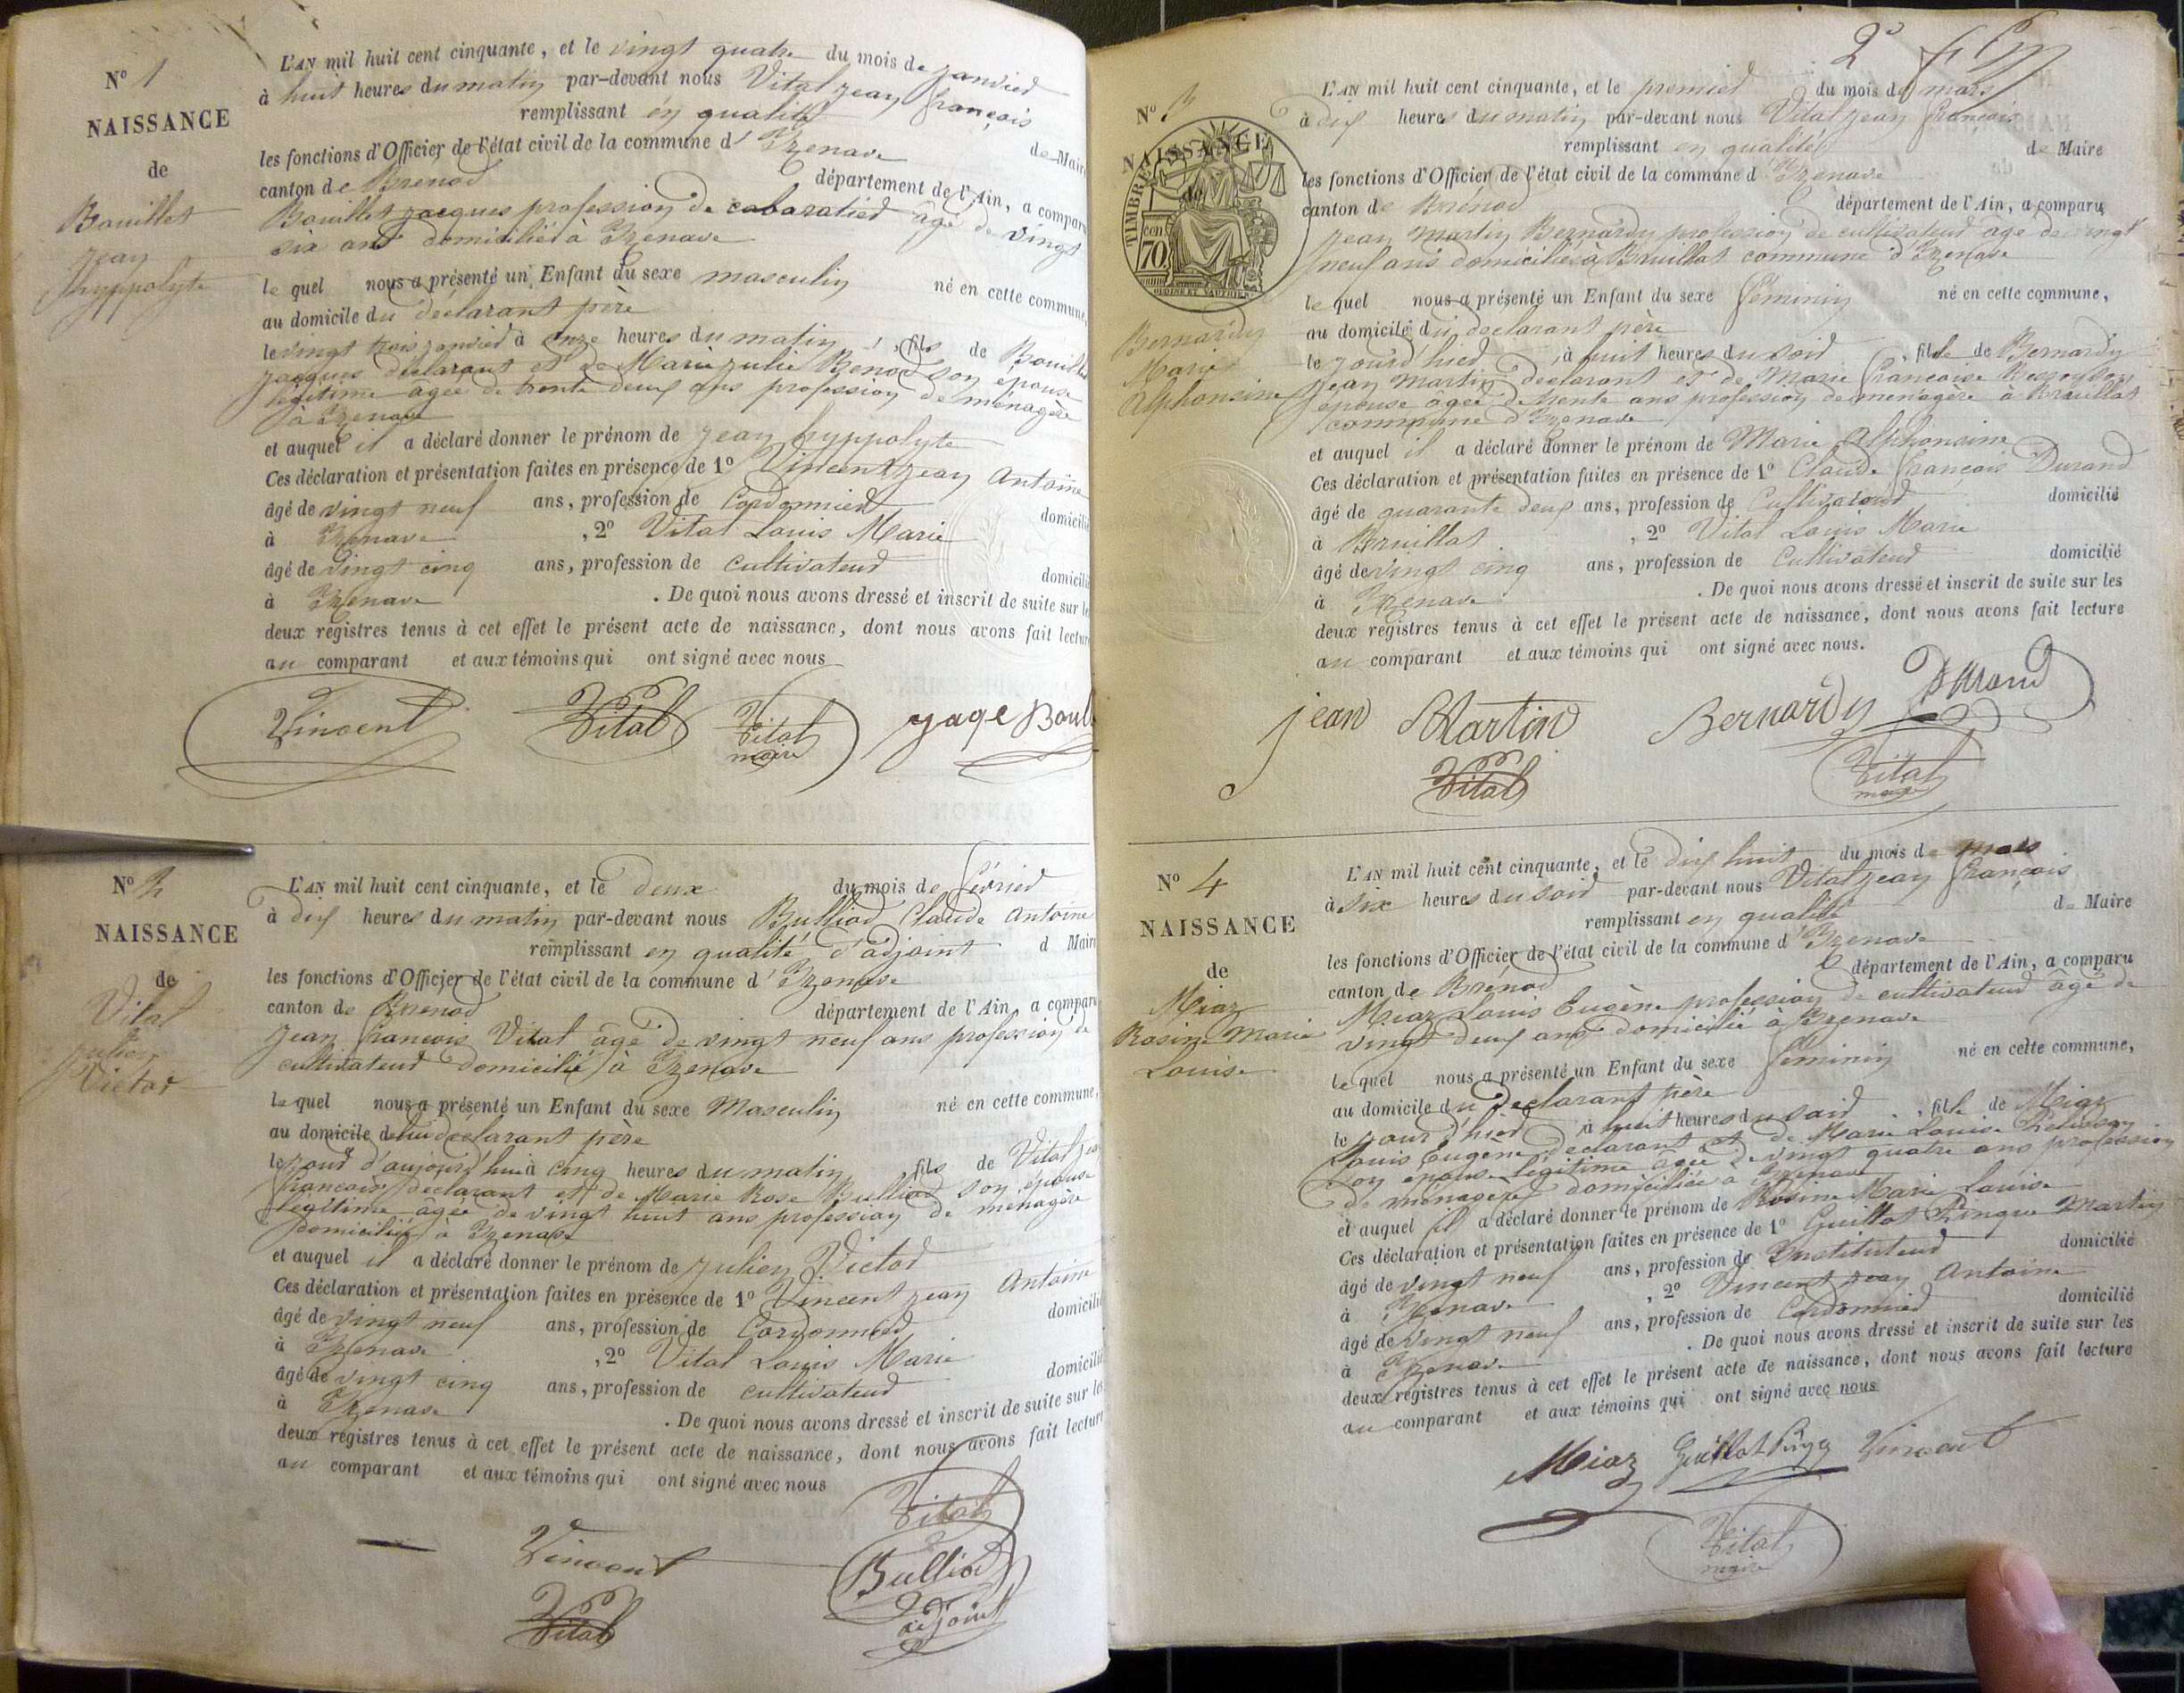 N° 1
NAISSANCE
de
Bouillet
Jean
hyppolyte
L'AN mil huit cent cinquante, et le vingt quatre du mois de janvier
à huit heures du matin par-devant nous Vital jean françois
remplissant en qualité de Maire
les fonctions d'Officier de l'état civil de la commune d'Izenave
canton de Brenod département de l'Ain, a comparu
Bouillet jacques profession de cabaratier âgé de vingt
six ans domicilié à Izenave
le quel nous a présenté un Enfant du sexe masculin né en cette commune,
au domicile du déclarant père
le vingt trois janvier à onze heures du matin, fils de Bouillet
jacques déclarant et de Marie julie Benod son épouse
légitime agée de trente deux ans profession de ménagère
à Izenave
et auquel il a déclaré donner le prénom de jean hyppolyte
Ces déclaration et présentation faites en présence de 1° Vincent jean Antoine
âgé de vingt neuf ans, profession de Cordonnier domicilié
à Izenave, 2° Vital Louis Marie
âgé de vingt cinq ans, profession de cultivateur domicilié
à Izenave. De quoi nous avons dressé et inscrit de suite sur les
deux registres tenus à cet effet le présent acte de naissance, dont nous avons fait lecture
au comparant et aux témoins qui ont signé avec nous
Vincent Vital Vital maire jaqe Boul
N° 2
NAISSANCE
de
Vital
julien
Victor
L'AN mil huit cent cinquante, et le deux du mois de février
à dix heures du matin par-devant nous Bulliod Claude Antoine
remplissant en qualité d'adjoint d Maire
les fonctions d'Officier de l'état civil de la commune d'Izenave
canton de Brénod département de l'Ain, a comparu
jean francois Vital âgé de vingt neuf ans profession de
cultivateur domicilié à Izenave
le quel nous a présenté un Enfant du sexe Masculin né en cette commune,
au domicile de lui déclarant père
le jour d'aujourd'hui à cinq heures du matin, fils de Vital jean
francois declarant et de Marie Rose Bulliod son épouse
légitime âgée de vingt huit ans profession de ménagère
domiciliée à Izenave
et auquel il a déclaré donner le prénom de julien Victor
Ces déclaration et présentation faites en présence de 1° Vincent jean Antoine
âgé de vingt neuf ans, profession de Cordonnier domicilié
à Izenave, 2° Vital Louis Marie
âgé de vingt cinq ans, profession de cultivateur domicilié
à Izenave. De quoi nous avons dressé et inscrit de suite sur les
deux registres tenus à cet effet le présent acte de naissance, dont nous avons fait lecture
au comparant et aux témoins qui ont signé avec nous
Vital
Vincent Bulliod
Vital adjoint
2°
N° 3
NAISSANCE
de
TIMBRE
cen
70
Bernardy
Marie
Alphonsine
L'AN mil huit cent cinquante, et le premier du mois de mars
à dix heures du matin par-devant nous Vital jean françois
remplissant en qualité de Maire
les fonctions d'Officier de l'état civil de la commune d'Izenave
canton de Brénod département de l'Ain, a comparu
jean Martin Bernardy profession de cultivateur âgé de vingt
neuf ans domicilié à Bruillat commune d'Izenave
le quel nous a présenté un Enfant du sexe féminin né en cette commune,
au domicile du declarant père
le jourd'hier, à huit heures du soir, fille de Bernardy
jean Martin declarant et de Marie françoise son
épouse agée de trente ans profession de ménagère à Bruillat
commune d'Izenave
et auquel il a déclaré donner le prénom de Marie Alphonsine
Ces déclaration et présentation faites en présence de 1° Claude françois Durand
âgé de quarante deux ans, profession de Cultivateur domicilié
à Bruillat, 2° Vital Louis Marie
âgé de vingt cinq ans, profession de Cultivateur domicilié
à Izenave. De quoi nous avons dressé et inscrit de suite sur les
deux registres tenus à cet effet le présent acte de naissance, dont nous avons fait lecture
au comparant et aux témoins qui ont signé avec nous.
jean Martin Bernardy Durand
Vital Vital maire
N° 4
NAISSANCE
de
Miaz
Rosine Marie
Louise
L'AN mil huit cent cinquante, et le dix huit du mois de mars
à six heures du soir par-devant nous Vital jean françois
remplissant en qualité de Maire
les fonctions d'Officier de l'état civil de la commune d'Izenave
canton de Brénod département de l'Ain, a comparu
Miaz Louis Eugène profession de cultivateur âgé de
vingt deux ans domicilié à Izenave
le quel nous a présenté un Enfant du sexe féminin né en cette commune,
au domicile du Declarant père
le jour d'hier à huit heures du soir, fille de Miaz
Louis Eugène declarant et de Marie Louise
son épouse légitime âgée de vingt quatre ans profession
de ménagère domiciliée à Izenave
et auquel il a déclaré donner le prénom de Rosine Marie Louise
Ces déclaration et présentation faites en présence de 1° Guillot Pingue Martin
âgé de vingt neuf ans, profession de Instituteur domicilié
à Izenave, 2° Vincent jean Antoine
âgé de vingt neuf ans, profession de Cordonnier domicilié
à Izenave. De quoi nous avons dressé et inscrit de suite sur les
deux registres tenus à cet effet le présent acte de naissance, dont nous avons fait lecture
au comparant et aux témoins qui ont signé avec nous
Miaz Guillot Vincent
Vital
maire